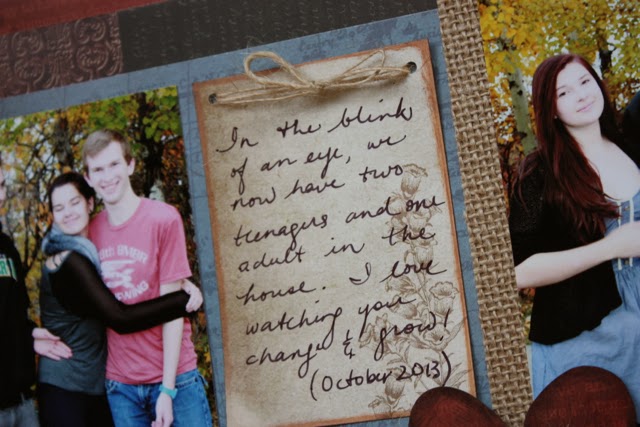 In the blink
of an eye, we
now have two
teenagers and one
adult in the
house. I love
watching you
change & grow!
(October 2013)